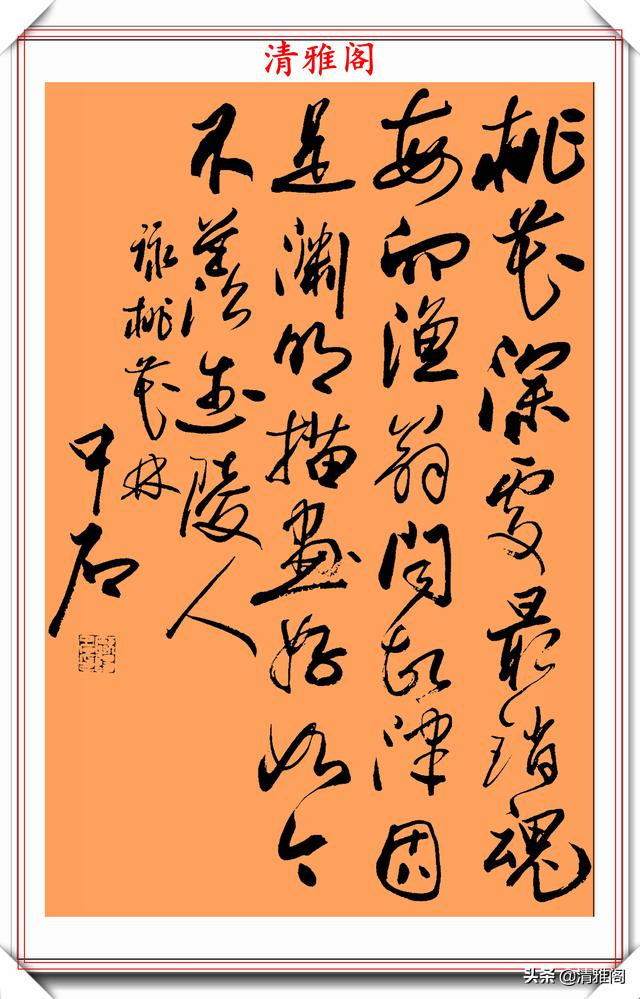 清雅阁
桃花深處最销魂
每向渔翁问故津因
是渊明描畫好如今
不羨武陵人
詠桃花林
中石
头条 @清雅阁